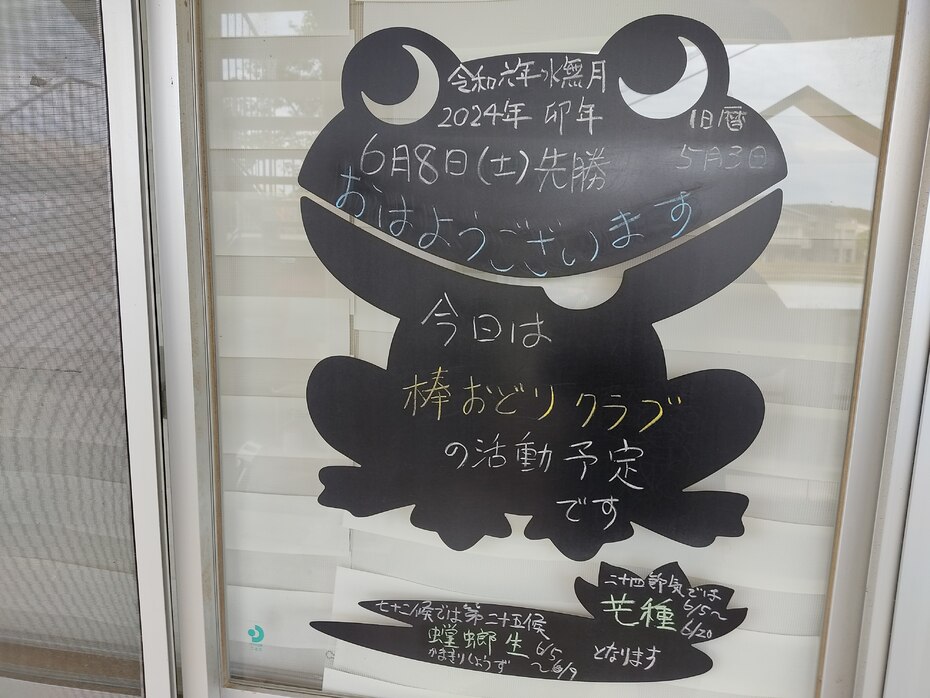 令和六年水無月
2024年 卯年
旧暦
5月3日
6月8日(土)先勝
おはようございます
今日は
棒おどりクラブ
の活動予定
です
二十四節気では
芒種 6/5～6/20
となります
七十二候では第二十五候
蟷螂生 6/5～6/9
かまきりしょうず